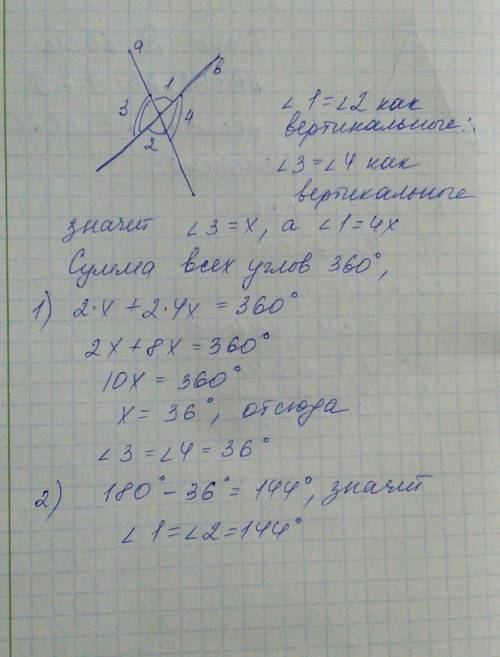 a
в
1
3
4
2
∠1=∠2 как
вертикальные.
∠3=∠4 как
вертикальные
значит ∠3=x, а ∠1=4x
Сумма всех углов 360°,
1) 2·x+2·4x=360°
2x+8x=360°
10x=360°
x=36°, отсюда
∠3=∠4=36°
2) 180°-36°=144°, значит
∠1=∠2=144°